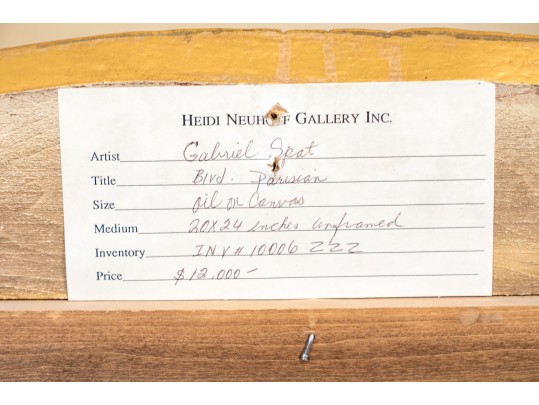 HEIDI NEUHOFF GALLERY INC.
Artist Gabriel Spat
Title Blvd. Parisian
Size oil on Canvas
Medium 20X24 inches unframed
Inventory INV# 10006 ZZZ
Price $12,000-